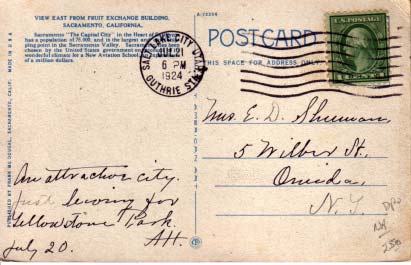 VIEW EAST FROM FRUIT EXCHANGE BUILDING,
SACRAMENTO, CALIFORNIA.
Sacramento "The Capital City" in the Heart of
has a population of 75,000, and is the largest and
ping point in the Sacramento Valley. Sacramento has been
chosen by the United States government
wonderful climate for a New Aviation School
of a million dollars.
A-75256
POSTCARD
THIS SPACE FOR ADDRESS ONLY
JUL 21
6 PM
1924
GUTHRIE STA.
U.S. POSTAGE
MADE IN U.S.A.
SACRAMENTO, CALIF.
PUBLISHED BY
Mrs. E. D. Sherman,
5 Wilber St.,
Oneida,
N. Y.
An attractive city.
Just leaving for
Yellowstone Park.
AH.
July 20.